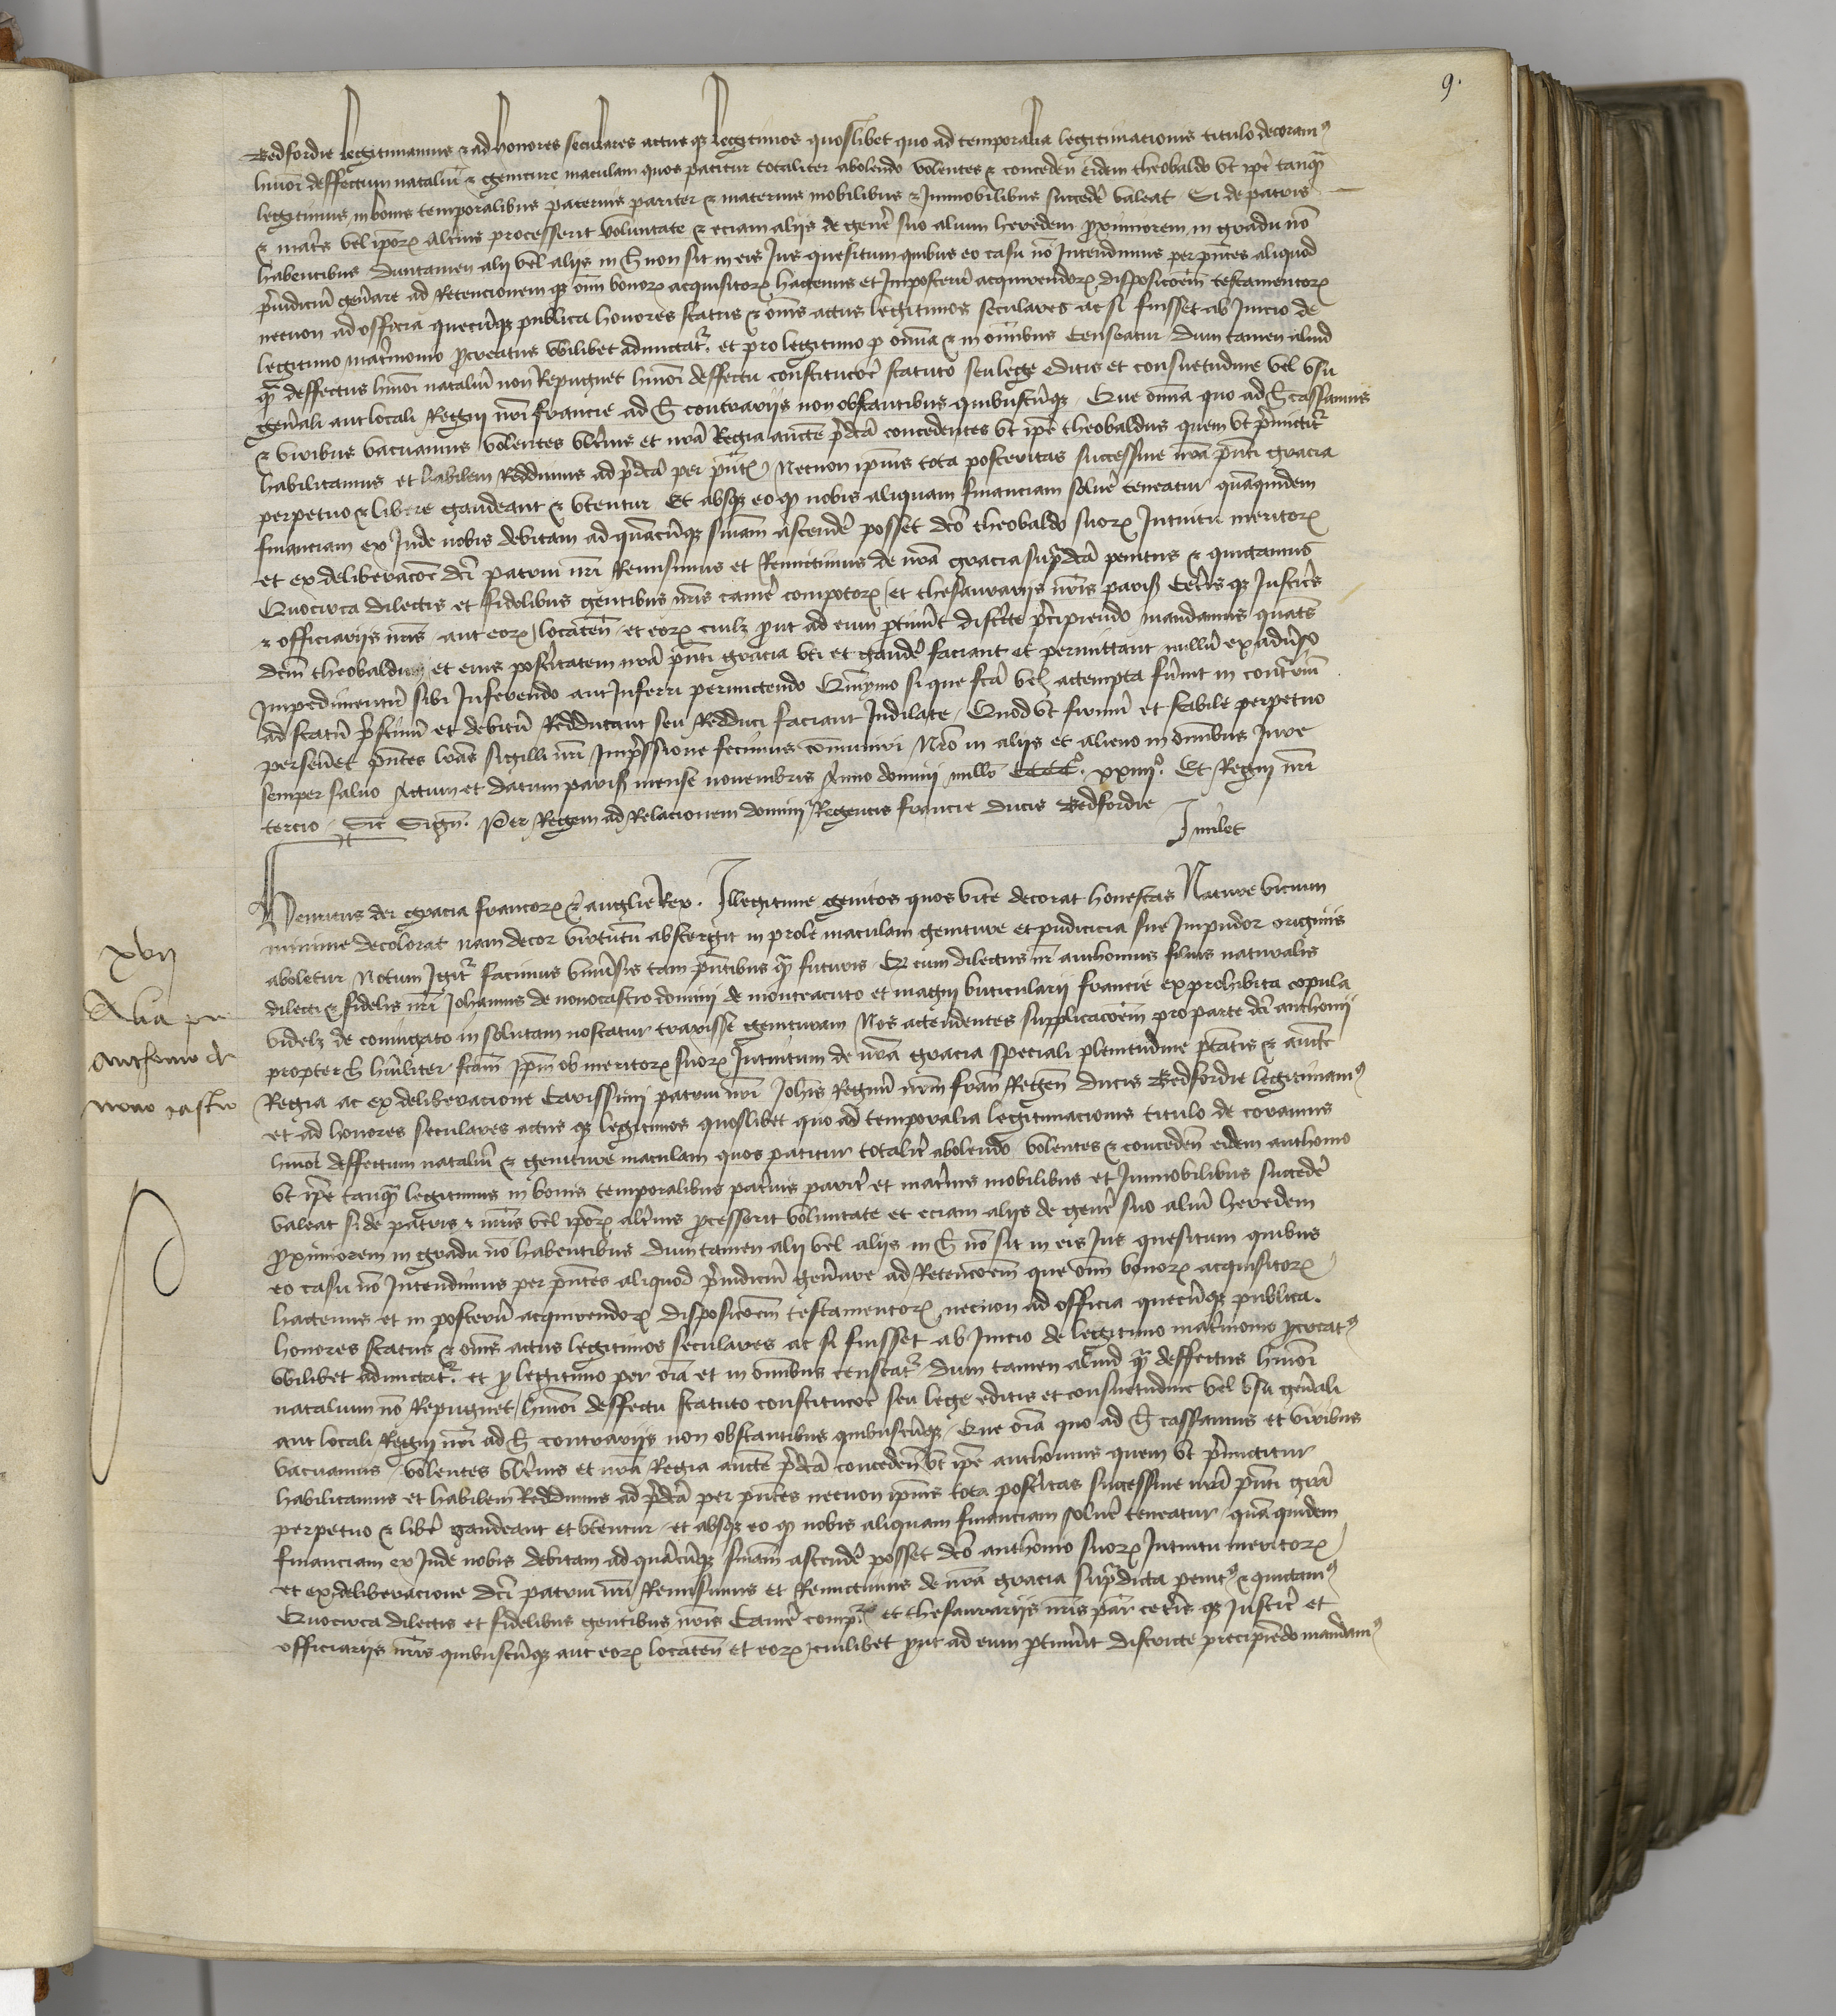 9.
Bedfordie legitimamus & ad honores seculares actus q3 legitimos quoslibet quo ad temporalia legitimacionis titulo decoramus
hmoi deffectum nataliu & geniture maculam quos patitur totaliter abolendo volentes & conceden eidem theobaldo vt ipe tanqua
legitimus in bonis temporalibus paternis pariter & maternis mobilibus & Immobilibus succede valeat Si de patris
& matris vel ipor alterius processerit voluntate & eciam alijs de gene suo alium heredem proximiorem in gradu no
habentibus Duntamen alij vel alijs in h non sit in eis Jus quesitum quibus eo casu no Intendimus per pntes aliquod
preiudiciu generare ad Retencionem q3 oim bonor acquisitor hactenus et Imposteru acquirendor disposicoem testamentor
necnon ad officia quecunq3 publica honores status & omes actus legitimos seculares ac si fuisset ab Inicio de
legitimo matrimonio procreatus vbilibet admictatr. et pro legitimo p omnia & in omnibus Censeatur Dum tamen aliud
qua deffectus hmoi nataliu non Repugnet hmoi deffectu constitucoe statuto seu lege editis et consuetudine vel vsu
generali aut locali Regni nri francie ad h contrarijs non obstantibus quibuscunq3. Que omnia quo ad h cassamus
& viribus vacuamus volentes vlterius et nra Regia aucte predca concedentes vt ipe theobaldus quem vt premictitr
habilitamus et habilem Reddimus ad predca per pntes Necnon ipius tota posteritas successiue nra pnti gracia
perpetuo & libere gaudeant & vtentur Et absq3 eo q nobis aliquam financiam solue teneatur quaquidem
financiam ex Inde nobis debitam ad quacunq3 sumam ascende posset dco theobaldo suor Intuitu meritor
et ex deliberacoe dci patrui nri Remisimus et Remictimus de nra gracia supradca penitus & quictamus
Quocirca dilectis et fidelibus gentibus nris came compotor et thesaurarijs nris parisius Ceteris q3 Justicis
& officiarijs nris aut eor locaten et eor cuil3 prout ad eum ptinuit discrete precipiendo mandamus quats
dcm theobaldum et eius posteritatem nra pnti gracia vti et gaude faciant et permittant nullu ex aduerso
Impedimentu sibi Inferendo aut Inferri permictendo Quinymo si que fca vel actempta fuerint in contrariu
ad statu pristinu et debitu Redducant seu Redduci faciant Indilate. Quod vt firmu et stabile perpetuo
perseueret pntes lras sigilli nri Impressione fecimus comuniri Nro in alijs et alieno in omnibus Jure
semper saluo Actum et datum parisius mense nouembris Anno domini millo CCCC°. xxiiii°. Et Regni nri
tercio Sic Sign. Per Regem ad Relacionem domini Regentis francie ducis Bedfordie
Henricus dei gracia francor & anglie Rex. Illegitime genitos quos vite decorat honestas Nature vicium
minime decolorat nam decor virtutu abstergit in prole maculam geniture et pudicicia sue Impudor originis
aboletur Notum Igitr facimus vniuersis tam pntibus qua futuris Q cum dilectus nr anthonius filius naturalis
dilecti & fidelis nri Johannis de nouocastro domini de monteacuto et magni buticularij francie ex prohibita copula
videl3 de coniugato in solutam noscatur traxisse genituram Nos actendentes supplicacoem pro parte dci anthonij
propter h humiliter fcam Ipm ob meritor suor Intuitum de nra gracia speciali plenitudine ptatis & aucte
Regia ac ex deliberacione Carissimi patrui nri Johis Regnu nrm fran Regen ducis Bedfordie legitimamus
et ad honores seculares actus q3 legitimos quoslibet quo ad temporalia legitimacionis titulo de coramus
hmoi deffectum nataliu & geniture maculam quos patitur totalit abolendo volentes & conceden eidem anthonio
vt ipe tanqua legitimus in bonis temporalibus paternis parit et maternis mobilibus et Immobilibus succede
valeat si de patris & mris vel ipor alterius processerit voluntate et eciam alijs de gene suo aliu heredem
proximiorem in gradu no habentibus dum tamen alij vel alijs in h no sit in eis Jus quesitum quibus
eo casu no Intendimus per pntes aliquod preiudiciu generare ad Retencoem que oim bonor acquisitor
hactenus et in posteru acquirendor disposicoem testamentor necnon ad officia quecunq3 publica.
honores status & omes actus legitimos seculares ac si fuisset ab Inicio de legitimo matrimonio procreatus
vbilibet admictatr. et pro legitimo per oia et in omibus censeatr dum tamen aliud qua deffectus hmoi
natalium no Repugnet hmoi deffectu statuto constitucoe seu lege editis et consuetudine vel vsu generali
aut locali Regni nri ad h contrarijs non obstantibus quibuscunq3. Que oia quo ad h cassamus et viribus
vacuamus volentes vlterius et nra Regia aucte predca conceden vt ipe anthonius quem vt premictitur
habilitamus et habilem Reddimus ad predca per pntes necnon ipius tota posteritas successiue nra pnti gra
perpetuo & libe gaudeant et vtentur et absq3 eo q nobis aliquam financiam solue teneatur qua quidem
financiam ex Inde nobis debitam ad quacunq3 sumam ascende posset dco anthonio suor Intuitu meritor
et ex deliberacione dci patrui nri Remisimus et Remictimus de nra gracia supradicta penitus & quictamus
Quocirca dilectis et fidelibus gentibus nris Came compr et thesaurarijs nris par ceteris q3 Justic et
officiarijs nris quibuscunq3 aut eor locaten et eor cuilibet prout ad eum ptinuit discrete precipiendo mandamus
xvij
Alia pro
anthonio de
nouo castro